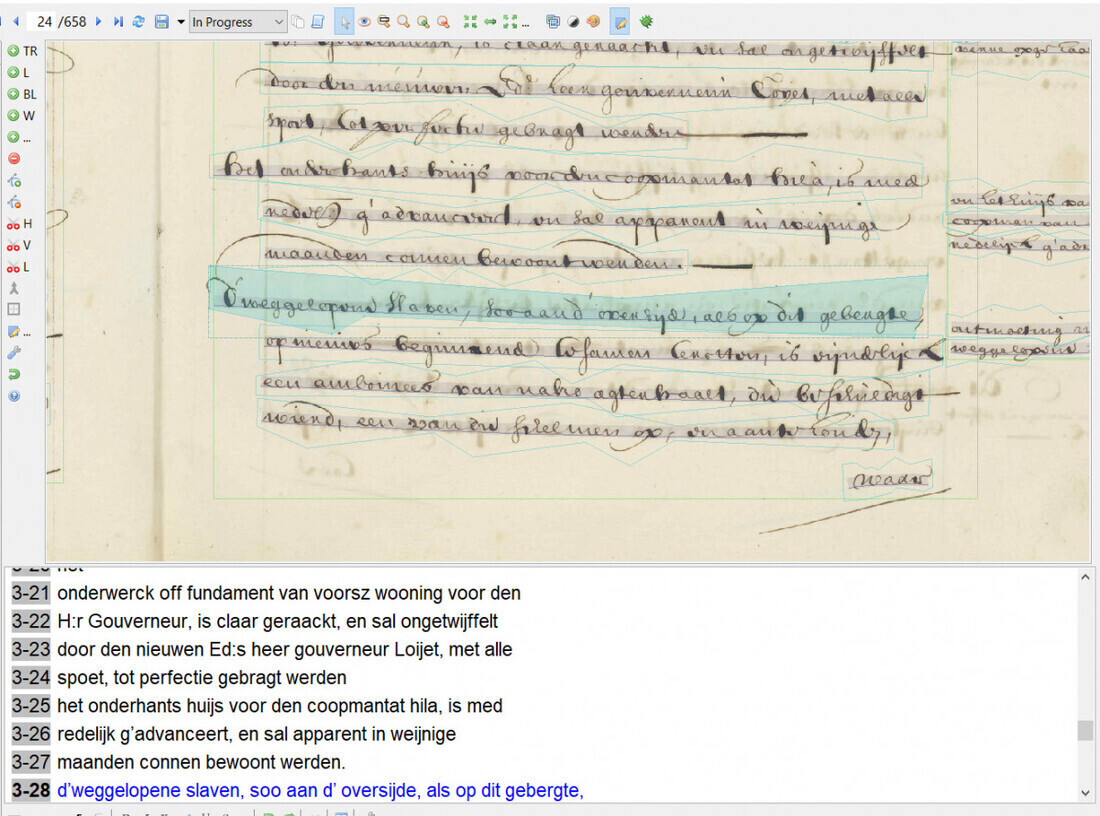 24 /658 In Progress ...
TR
L
BL
W
...
H
V
L
...
H:r Gouverneur, is claar geraackt, en sal ongetwijffelt
door den nieuwen Ed:s heer gouverneur Coijet, met alle
spoet, tot perfectie gebragt werden
het onderhants huijs voor den coopman tot hila, is med
redelijk g'advanceert, en sal apparent in weijnige
maanden connen bewoont werden.
d'weggelopene slaven, soo aan d'oversijde, als op dit gebergte,
op nieuws beginnend tsamen rotten, is eijndelijk
een amboinees van agterhaalt, die beschuldigt
wierd, een van die schelmen op, en aan te
waar
en het huijs va
coopman van
redelijk g'adv
ontmoeting
weggelopene
3-20 het
3-21 onderwerck off fundament van voorsz wooning voor den
3-22 H:r Gouverneur, is claar geraackt, en sal ongetwijffelt
3-23 door den nieuwen Ed:s heer gouverneur Loijet, met alle
3-24 spoet, tot perfectie gebragt werden
3-25 het onderhants huijs voor den coopmantat hila, is med
3-26 redelijk g’advanceert, en sal apparent in weijnige
3-27 maanden connen bewoont werden.
3-28 d’weggelopene slaven, soo aan d’ oversijde, als op dit gebergte,